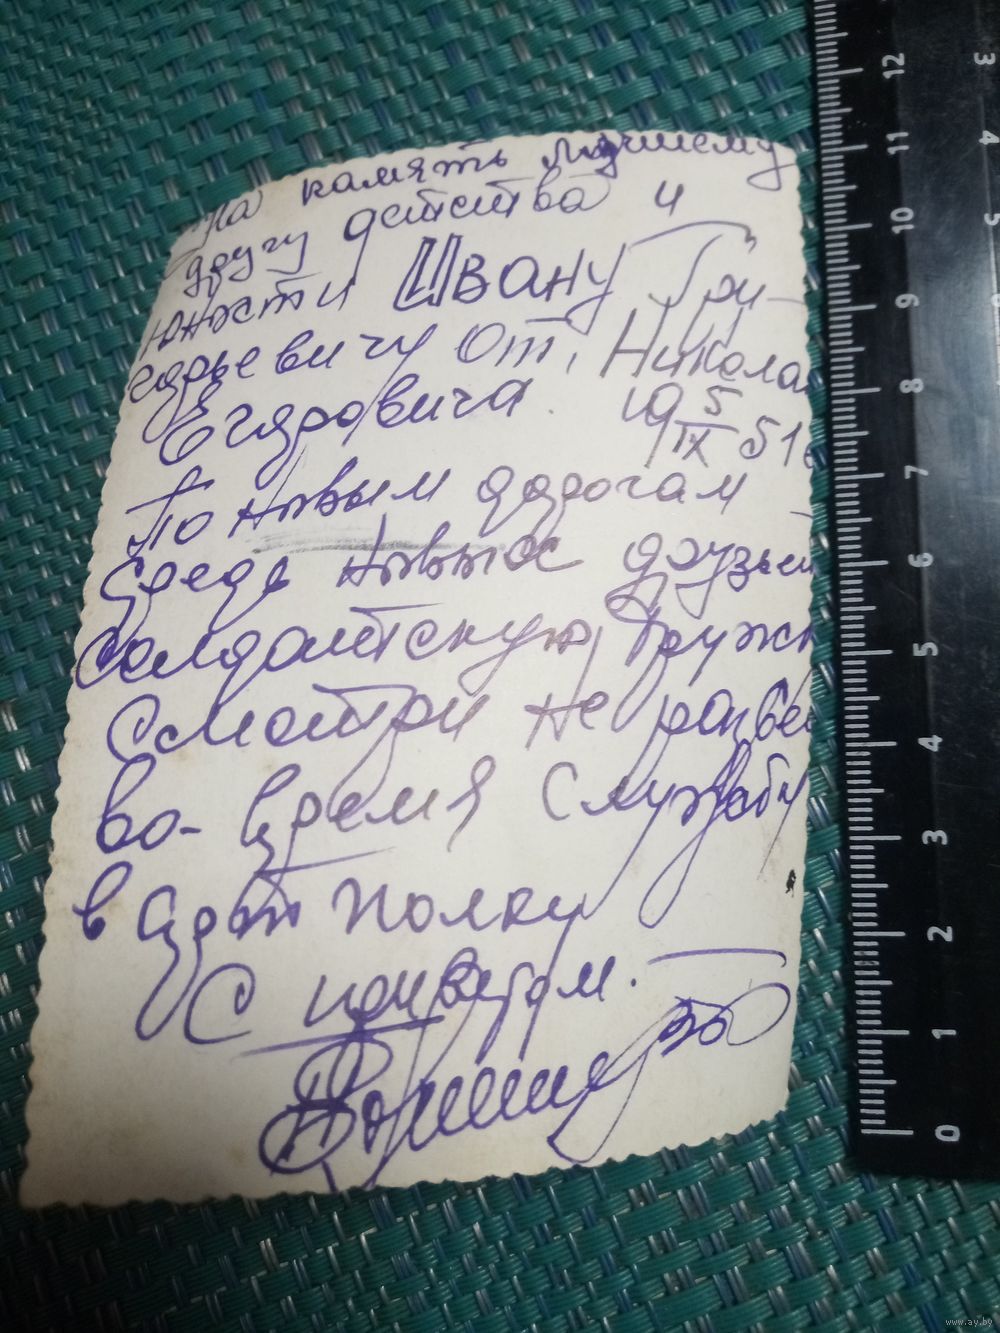 На память лучшему
другу детства и
юности Ивану Гри-
горьевичу от Никола
Егоровича 19 5/IX 51г
По новым дорогам
среди новых друзьей
солдатскую дружк
Смотри не разбей
во-время службы
в полку
С приветом.
0 1 2 3 4 5 6 7 8 9 10 11 12
3 4 5
www.ay.by